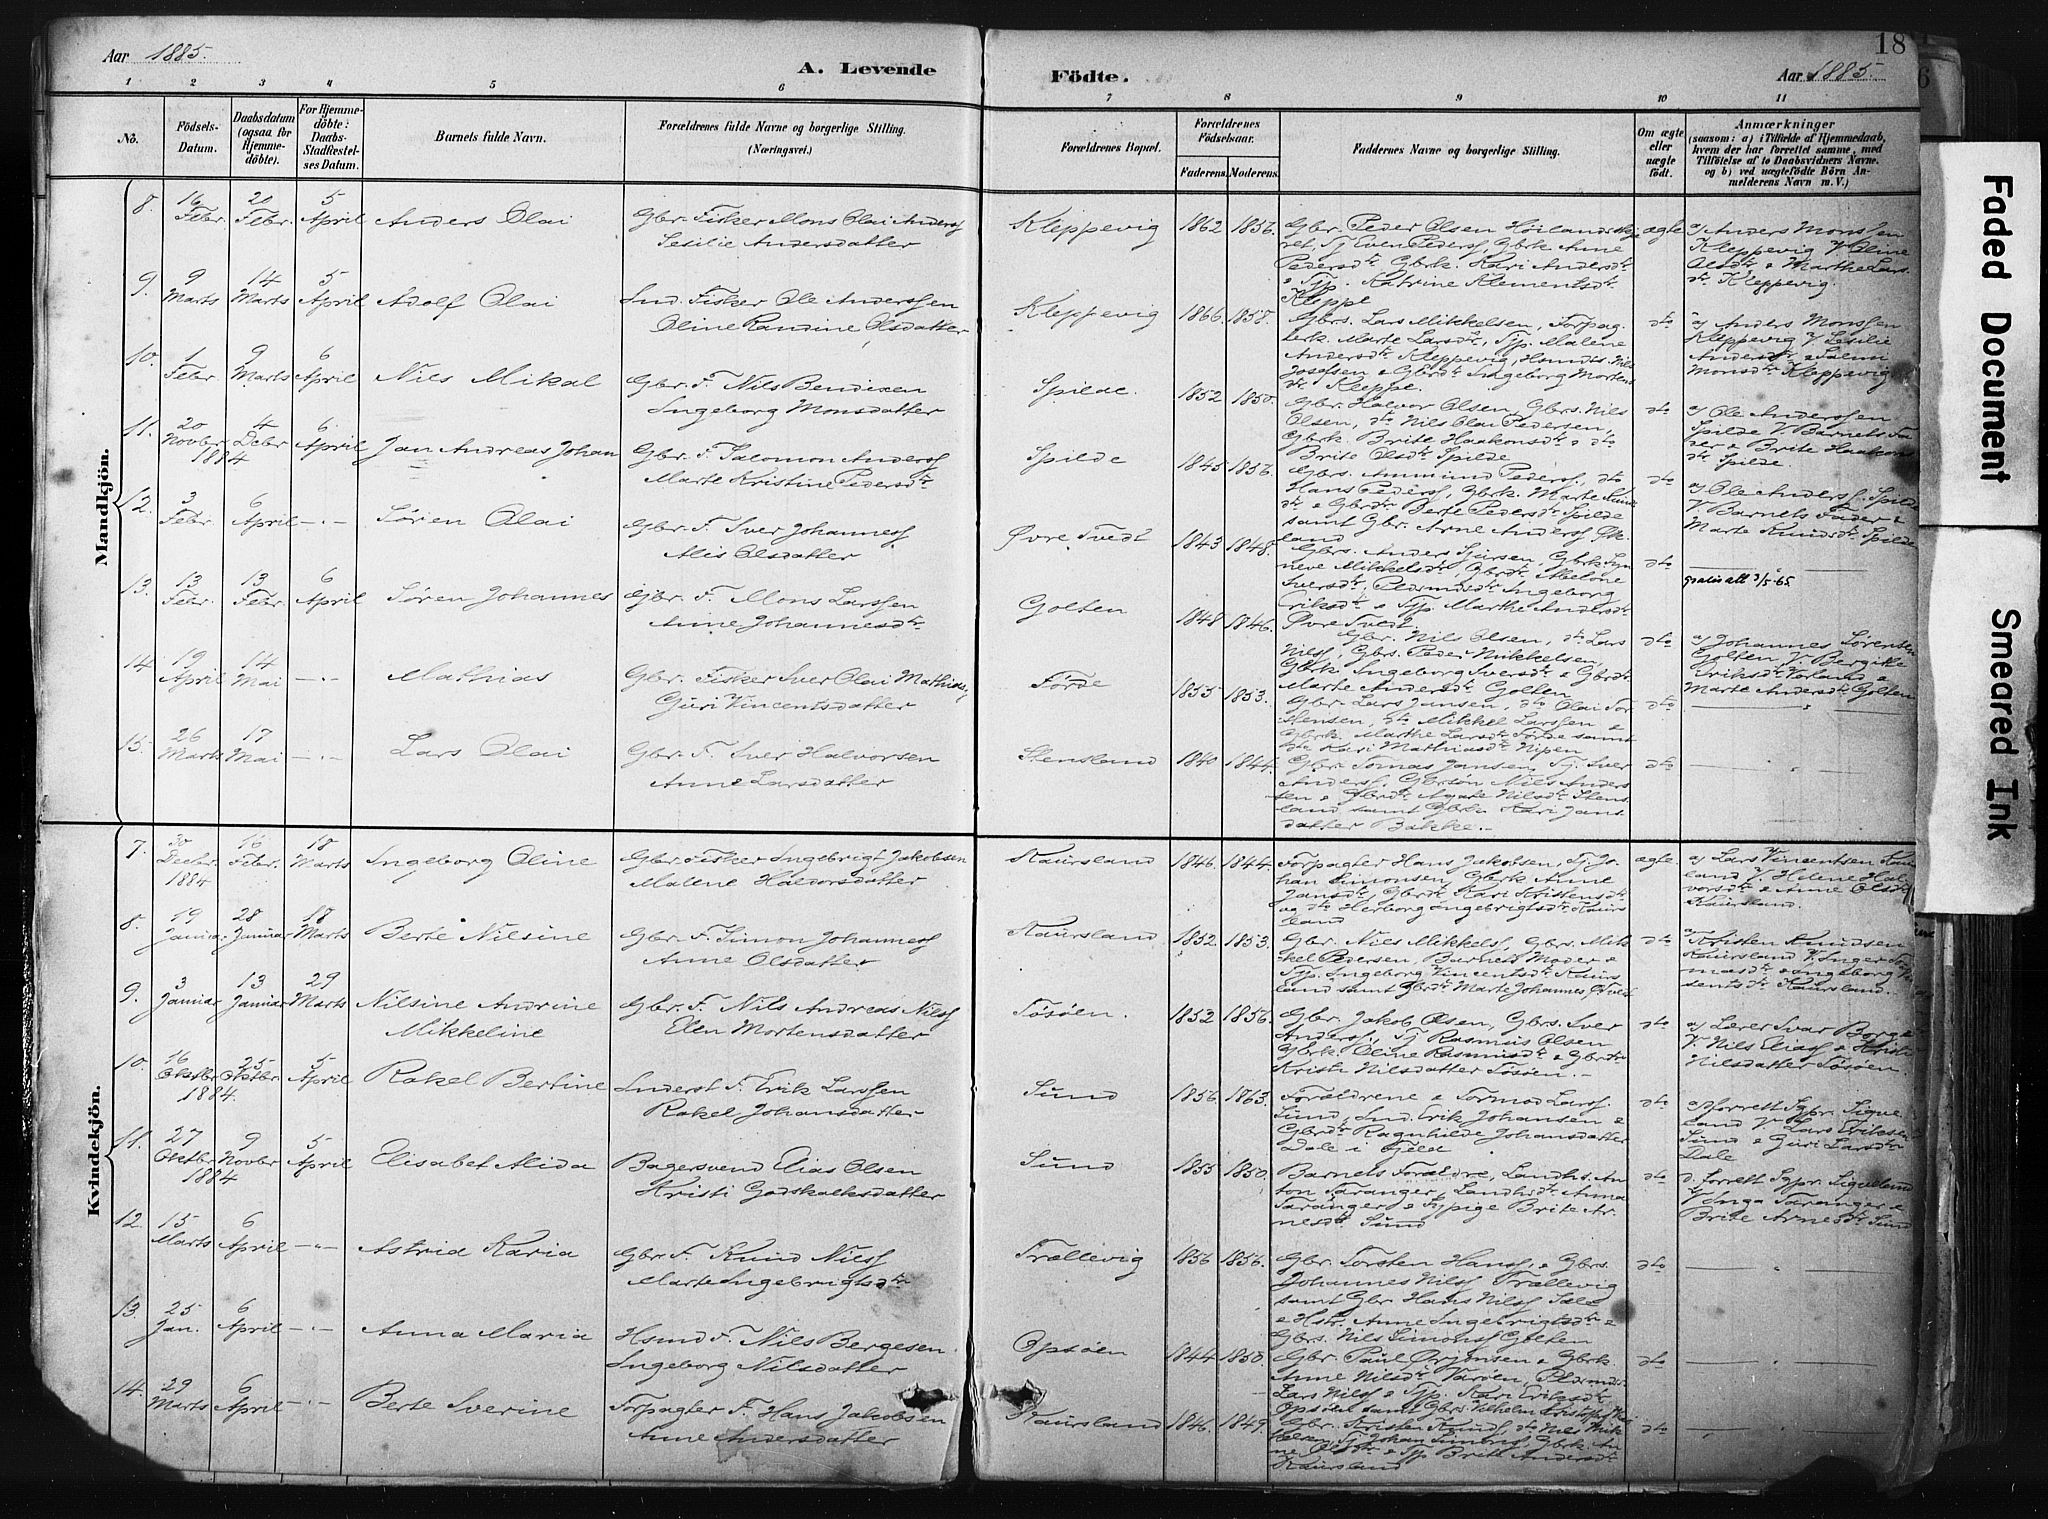 Aar 1885.
A. Levende
Födte.
Aar 1885.
18
6
1 2 3 4 5 6 7 8 9 10 11
No.
Födsels-
Datum.
Daabsdatum
(ogsaa for
Hjemme-
döbte).
For Hjemme-
döbte:
Daabs-
Stadfæstel-
ses Datum.
Barnets fulde Navn.
Forældrenes fulde Navne og borgerlige Stilling.
(Næringsvei.)
Forældrenes Bopæl.
Forældrenes
Födselsaar.
Faderens. Moderens.
Faddernes Navne og borgerlige Stilling.
Om ægte
eller
uægte
födt.
Anmærkninger
(saasom: a) i Tilfælde af Hjemmedaab,
hvem der har forrettet samme, med
Tilföielse af to Daabsvidners Navne.
og b) ved uægtefödte Börn An-
melderens Navn m. V.)
Mandkjön.
8. 16 Febr. 20 Febr. 5 April Anders Olai
Gbr. Fisker Mons Olai Anderss
Cesilie Andersdatter
Kleppevig 1862 1856.
Gbr. Peder Olsen Höilandskje
ret, Tj. Even Peders, Gbrk. Anne
Pedersdtr Gbrk. Kari Andersdtr
& Typ. Katrine Klementsdtr
Kleppe
ægte
a) Anders Monssen
Kleppevig V. Oline
Olsdtr & Marthe Lars
dtr Kleppevig.
9. 9 Marts 14 Marts 5 April Adolf Olai
Ind. Fisker Ole Anderssen
Oline Randine Olsdatter
Kleppevig 1866 1858.
Gbrs. Lars Mikkelsen, Forpag-
terk. Marte Larsdtr, Typ. Malene
Andersdtr Kleppevig, Hsmdts. Nils
Josefsen & Gbrdtr Ingeborg Mortens
dtr Kleppe.
dto
a) Anders Monssen
Kleppevig V. Cesilie
Andersdtr & Salmi
Monsdtr Kleppevig
10. 1 Febr. 9 Marts 6 April Nils Mikal
Gbr. F. Nils Bendixen
Ingeborg Monsdatter
Spilde. 1852 1850.
Gbr. Halvor Olsen, Gbrs. Nils
Olsen, dto Nils Olai Pedersen,
Gbrk. Brite Haakonsdtr & dto
Brite Olsdtr Spilde
dto
a) Ole Anderssen
Spilde V. Barnets Fa-
der & Brite Haakons
dtr Spilde.
11. 20 Novbr. 1884 4 Debr. 6 April Jan Andreas Johan
Gbr. F. Salomon Anderss
Marte Kristine Pedersdtr
Spilde 1845 1856.
Gbrs. Ammund Peders, dto
Hans Peders, Gbrk. Marte Knuds
dtr & Gbrdtr Berte Pedersdtr Spilde
samt Gbr. Arne Anderss Øk-
land
dto
a) Ole Anderss Spilde
V. Barnets Fader &
Marte Knudsdtr Spilde
12. 3 Febr. 6 April -"- Søren Olai
Gbr. F. Iver Johanness
Alis Olsdatter
Øvre Tvedt 1843 1848.
Gbrs. Anders Sjursen Gbrk Syn
neve Mikkelsdtr, Gbrdtr Abelone
Iversdtr, Pedermdsdtr Ingeborg
Eriksdtr & Typ Marthe Andersdtr
Øvre Tvedt.
dto
gratis att 3/5-65
13. 13 Febr. 13 Febr. 6 April Søren Johannes
Gbr. F. Mons Larssen
Anne Johannesdtr
Golten 1848 1846.
Gbr. Nils Olsen, dto Lars
Nilss, Gbrs. Peder Mikkelsen,
Gbrk Ingeborg Iversdtr & Gbrdtr
Marte Andersdtr Golten
dto
a) Johannes Sørensen
Golten V. Bergitte
Eriksdtr Vorland &
Marte Andersdtr Golten
14. 19 April 14 Mai -"- Mathias
Gbr. Fisker Iver Olai Mathiass
Guri Vincentsdatter
Førde 1855 1853.
Gbr. Lars Jansen, dto Olai Tor-
stensen, dto Mikkel Larssen &
Gbrk. Marthe Larsdtr Førde samt
dto Kari Mathiasdtr Nipen
dto
15. 26 Marts 17 Mai -"- Lars Olai
Gbr. F. Iver Halvorsen
Anne Larsdatter
Stensland 1840 1844.
Gbr. Tomas Jansen, Tj. Iver
Anderss, Gbrsøn Nils Anders
sen & Gbrdtr Agate Nilsdtr Stens
land samt Gbrk Kari Jans
datter Bakke.-
dto
Kvindekjön.
7. 30 Decbr. 1884 16 Febr. 18 Marts Ingeborg Oline
Gbr. Fisker Ingebrigt Jakobsen
Malene Halvorsdatter
Kaursland 1846. 1844.
Forpagter Hans Jakobsen, Tj. Jo-
han Simonsen, Gbrk Anne
Jansdtr, Gbrdtr Kari Kristensdtr
og dto Herborg Ingebrigtsdtr Kaurs
land
ægte.
a) Lars Vincentsen Kaurs
land V. Helene Hal-
vorsdtr & Anne Olsdtr
Kaursland.
8. 19 Januar. 28 Januar 18 Marts Berte Nilsine
Gbr. F. Simon Johanness
Anne Olsdatter
Kaursland 1852 1853.
Gbr. Nils Mikkels, Gbrs. Mik
kel Pedersen, Barnets Moder &
Typ. Ingeborg Vincentsdtr Kaurs
land samt Gbrdtr Marte Johannes Ø. Tvet
dto
a) Kristen Knudsen
Kaursland V. Inger To-
masdtr & Ingeborg Vin
sentsdtr Kaursland.
9. 3 Januar 13 Januar 29 Marts Nilsine Andrine
Mikkeline
Gbr. F. Nils Andreas Nilss
Elen Mortensdatter
Tösöen. 1852 1856.
Gbr. Jakob Olsen, Gbrs. Iver
Anderss, Tj Rasmus Olsen
Gbrk Oline Rasmusdtr & Gbrdtr
Kristi Nilsdatter Tösöen.-
dto
a) Lærer Ivar Borge
V. Nils Eliass & Kristi
Nilsdatter Tösöen.
10. 16 Oktbr. 1884. 25 Oktbr. 5 April Rakel Bertine
Inderst F. Erik Larssen
Rakel Johansdatter
Sund 1856. 1863.
Forældrene & Tormod Larss.
Sund, Ind. Erik Johansen &
Gbrdtr Ragnhilde Johansdatter
Dale i Fjeld
dto
a) forrett Sgpr. Sigve
land V. Lars Eriksen
Sund & Guri Larsdtr
Dale
11. 27 Oktbr. 1884 9 Novbr 5 April Elisabet Alida
Bagersvend Elias Olsen
Kristi Godskalksdatter
Sund 1855 1850.
Barnets Forældre, Landhs. An-
ton Taranger, Landhdtr Anna
Taranger & Typige Brite Ar-
nesdtr Sund
dto
a. forrett Sgpr. Sigveland
V. Inga Taranger &
Brite Arnesdtr Sund
12. 15 Marts 6 April -"- Astrid Karia
Gbr. F. Knud Nilss
Marte Ingebrigtsdtr
Trællevig 1856 1856.
Gbr. Torsten Hanss, & Gbrs.
Johannes Nilss Trællevig
samt Gbr Hans Nilss Tæle
& Hstr. Anne Ingebrigtsdtr &
Gbrs. Nils Simonss Golten
dto
13. 25 Jan. 6 April -"- Anna Maria
Hsmd F. Nils Bergesen.
Ingeborg Nilsdatter
Opsöen 1844 1850.
Gbr. Paul Ørjansen & Gbrk.
Anne Nilsdtr Varöen,
Lars Nilss & Typ. Kari Eriksdtr
Opsöen samt Gbrs. Vilhelm
dto
14. 29 Marts 6 April -"- Berte Iverine
Forpagter F. Hans Jakobsen
Anne Andersdatter
Kaursland 1846. 1849.
Gbr. Kristen Knuds, dto Nils Mik
kelsen, Tj Johan Simons, Gbrk. An-
ne Olsdtr & Typ Brite Andersdtr
Kaursland
dto
Faded Document
Smeared Ink